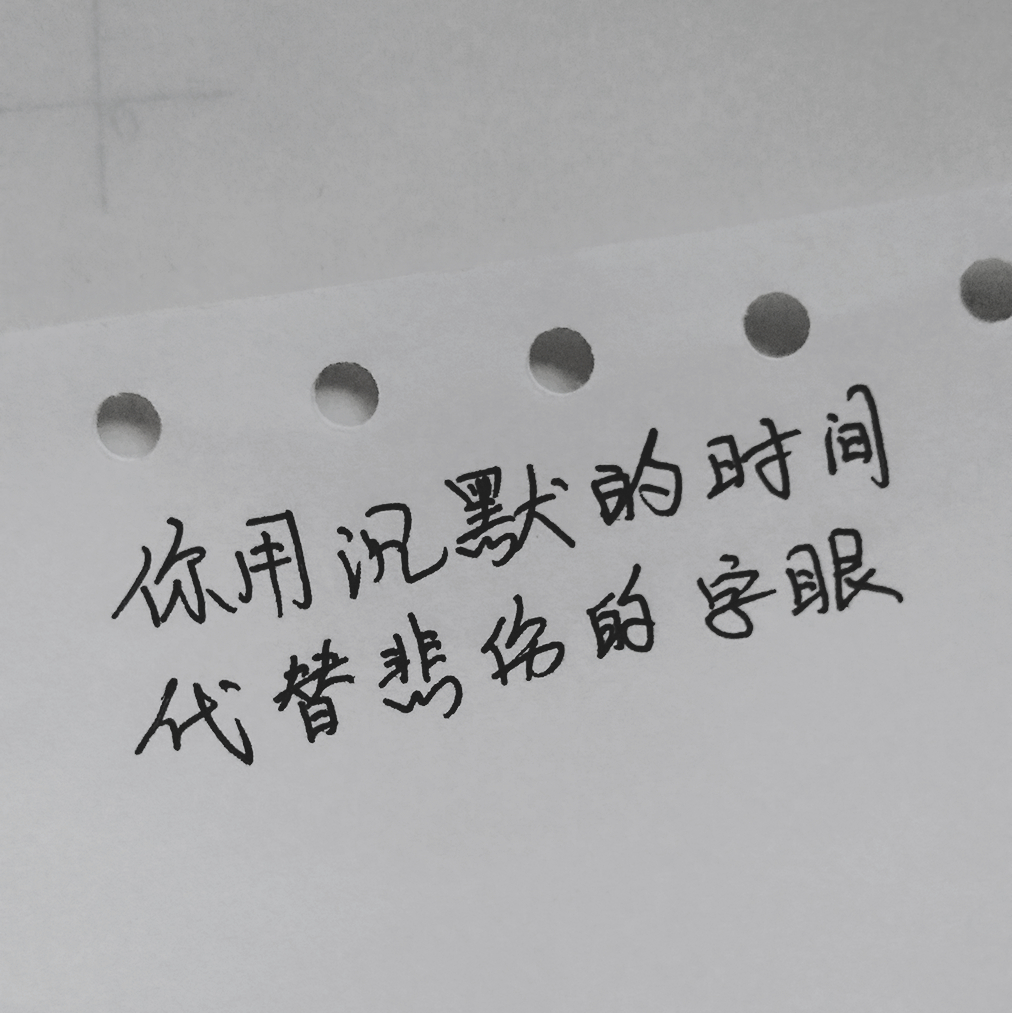 你用沉默的时间
代替悲伤的字眼